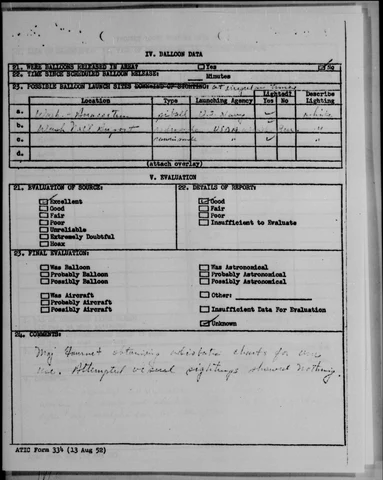 IV. BALLOON DATA
21. WERE BALLOONS RELEASED IN AREA? Yes No
22. TIME SINCE SCHEDULED BALLOON RELEASE: Minutes
23. POSSIBLE BALLOON LAUNCH SITES
Lighted? Describe
Location Type Launching Agency Yes No Lighting
a. pibal U.S. Navy white
b. Wash Nat'l Airport "
c. " "
d.
(attach overlay)
V. EVALUATION
21. EVALUATION OF SOURCE: 22. DETAILS OF REPORT:
Excellent Good
Good Fair
Fair Poor
Poor Insufficient to Evaluate
Unreliable
Extremely Doubtful
Hoax
23. FINAL EVALUATION:
Was Balloon Was Astronomical
Probably Balloon Probably Astronomical
Possibly Balloon Possibly Astronomical
Was Aircraft Other:
Probably Aircraft
Possibly Aircraft Insufficient Data For Evaluation
Unknown
24. COMMENTS:
Maj Fournet obtaining charts for our
use. Attempted visual sightings showed nothing.
ATIC Form 334 (13 Aug 52)